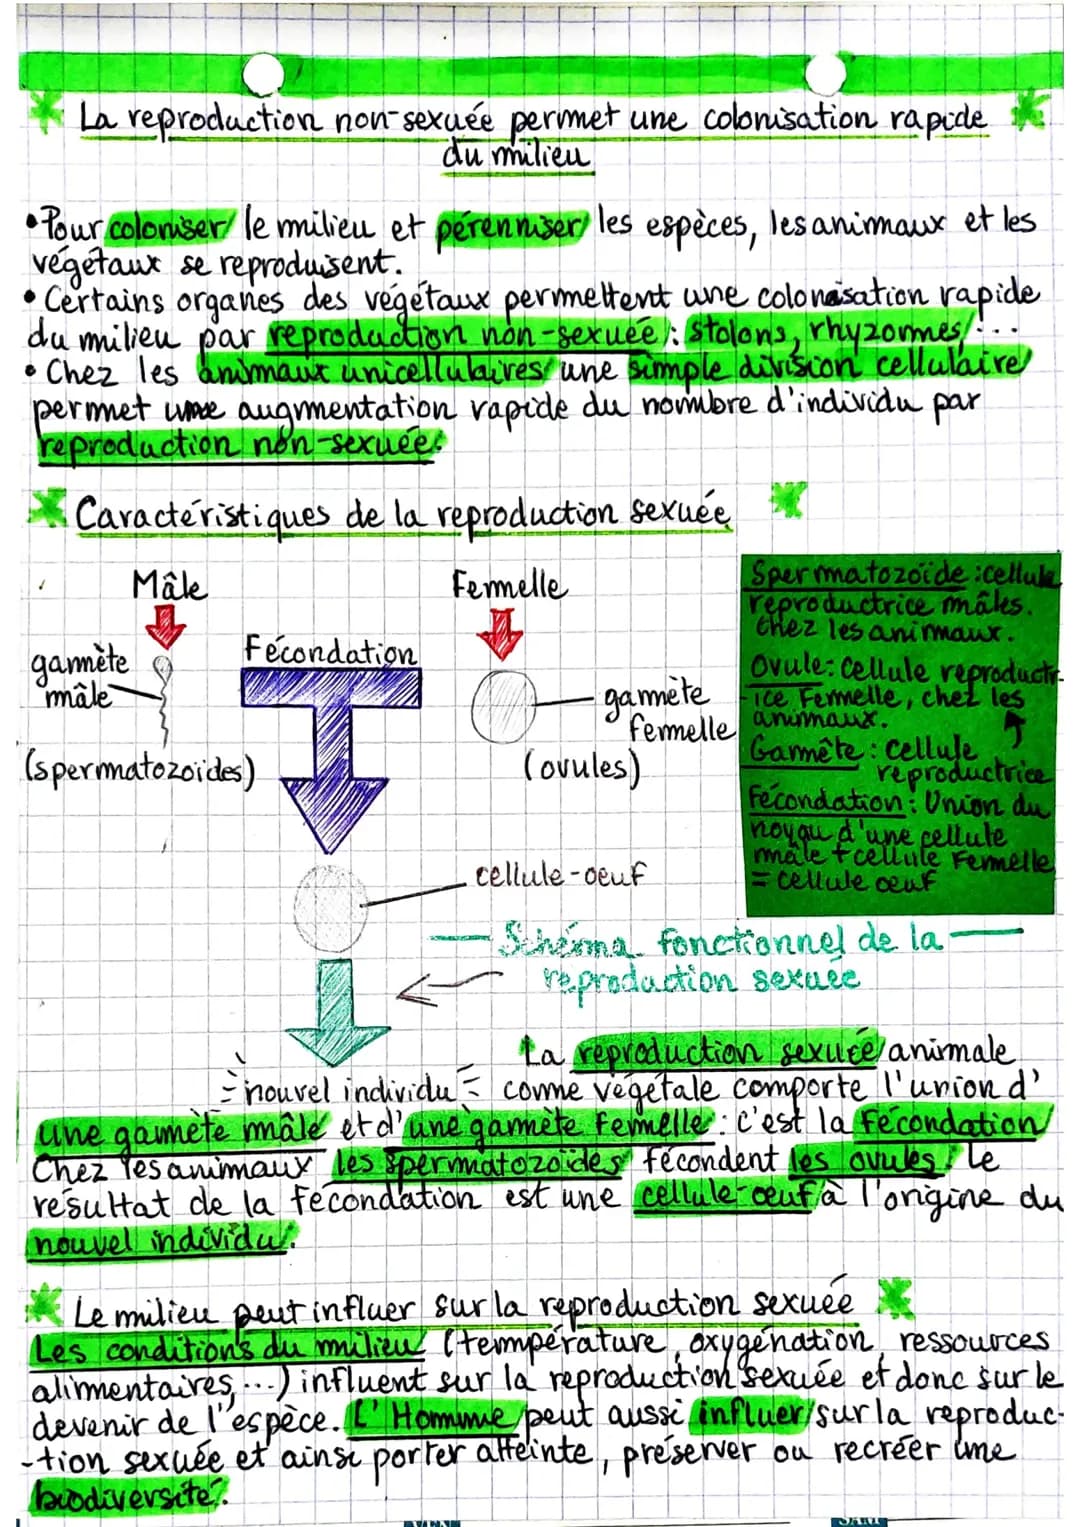 La reproduction non-sexuée permet une colonisation rapide
du milieu
•Pour coloniser le milieu et pérenniser les espèces, les animaux et les
végétaux se reproduisent.
• Certains organes des végétaux permettent une colonisation rapide
du milieu par reproduction non-sexuée: stolons, rhyzomes,...
• Chez les animaux unicellulaires une simple division cellulaire
permet une augmentation rapide du nombre d'individu par
reproduction non-sexuée.
Caractéristiques de la reproduction sexuée
Mâle
Femelle
gamète
mâle
(spermatozoïdes)
Fécondation
gamète
femelle
(ovules)
cellule-oeuf
Spermatozoïde :cellule
reproductrice mâles.
chez les animaux.
Ovule: Cellule reproductr-
-ice Femelle, chez les
animaux.
Gamête : Cellule
reproductrice
Fécondation : Union du
noyau d'une cellule
mâle + cellule Femelle
= cellule œuf
Schéma fonctionnel de la
reproduction sexuée
nouvel individu
La reproduction sexuée animale
comme végétale comporte l'union d'
une gamète mâle et d'une gamète femelle : c'est la fécondation
Chez les animaux les spermatozoïdes fécondent les ovules. Le
résultat de la fécondation est une cellule-œuf à l'origine du
nouvel individu.
Le milieu peut influer sur la reproduction sexuée
Les conditions du milieu (température, oxygénation, ressources
alimentaires,...) influent sur la reproduction sexuée et donc sur le
devenir de l'espèce. L'Homme peut aussi influer sur la reproduc-
-tion sexuée et ainsi porter atteinte, préserver ou recréer une
biodiversité.